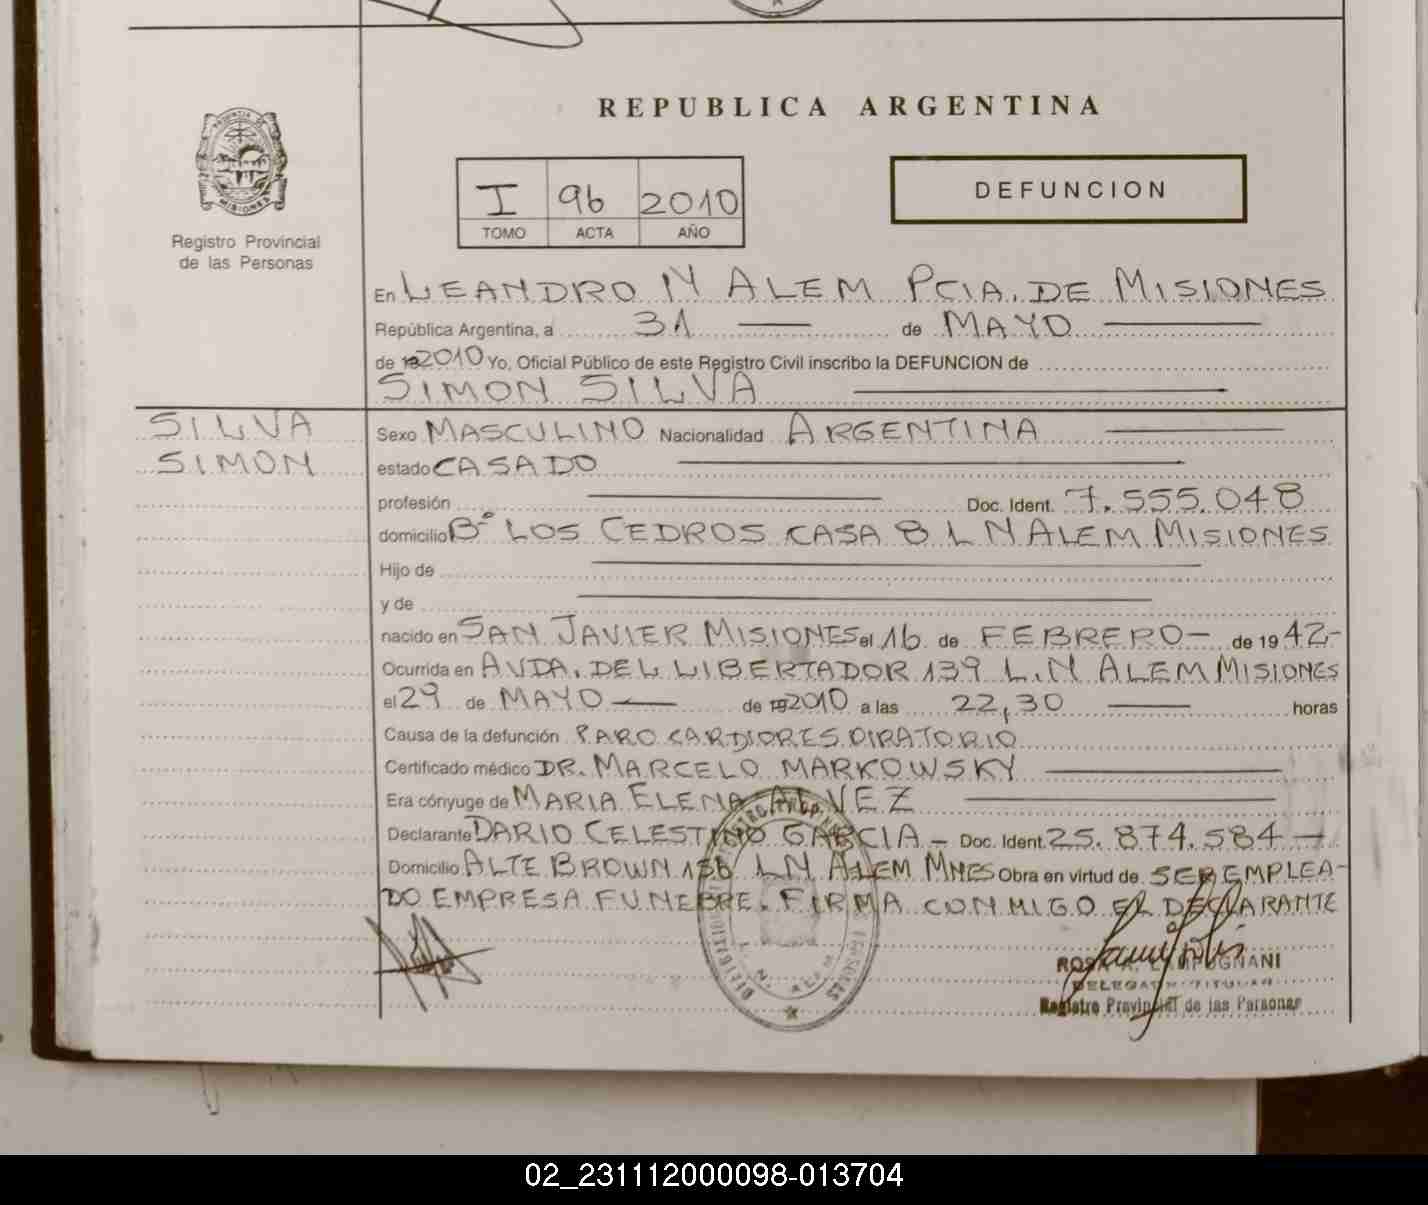 REPUBLICA ARGENTINA
I 96 2010
TOMO ACTA AÑO
DEFUNCION
Registro Provincial
de las Personas
En LEANDRO N ALEM PCIA. DE MISIONES
República Argentina, a 31 de MAYO
de 2010 Yo, Oficial Público de este Registro Civil inscribo la DEFUNCION de
SIMON SILVA
SILVA
SIMON
Sexo MASCULINO Nacionalidad ARGENTINA
estado CASADO
profesión Doc. Ident. 7.555.048
domicilio Bº LOS CEDROS CASA 8 L N ALEM MISIONES
Hijo de
y de
nacido en SAN JAVIER MISIONES el 16 de FEBRERO - de 19 42-
Ocurrida en AVDA. DEL LIBERTADOR 139 L.N ALEM MISIONES
el 29 de MAYO de 2010 a las 22,30 horas
Causa de la defunción PARO CARDIORESPIRATORIO
Certificado médico DR. MARCELO MARKOWSKY
Era cónyuge de MARIA ELENA ALVEZ
Declarante DARIO CELESTINO GARCIA - Doc. Ident. 25.874.584 -
Domicilio ALTE BROWN 136 LN ALEM MNES Obra en virtud de SER EMPLEA-
DO EMPRESA FUNEBRE. FIRMA CONMIGO EL DECLARANTE
L. N. ALEM
ROSA A. LAMPUGNANI
DELEGADA TITULAR
Registro Provincial de las Personas
02_231112000098-013704